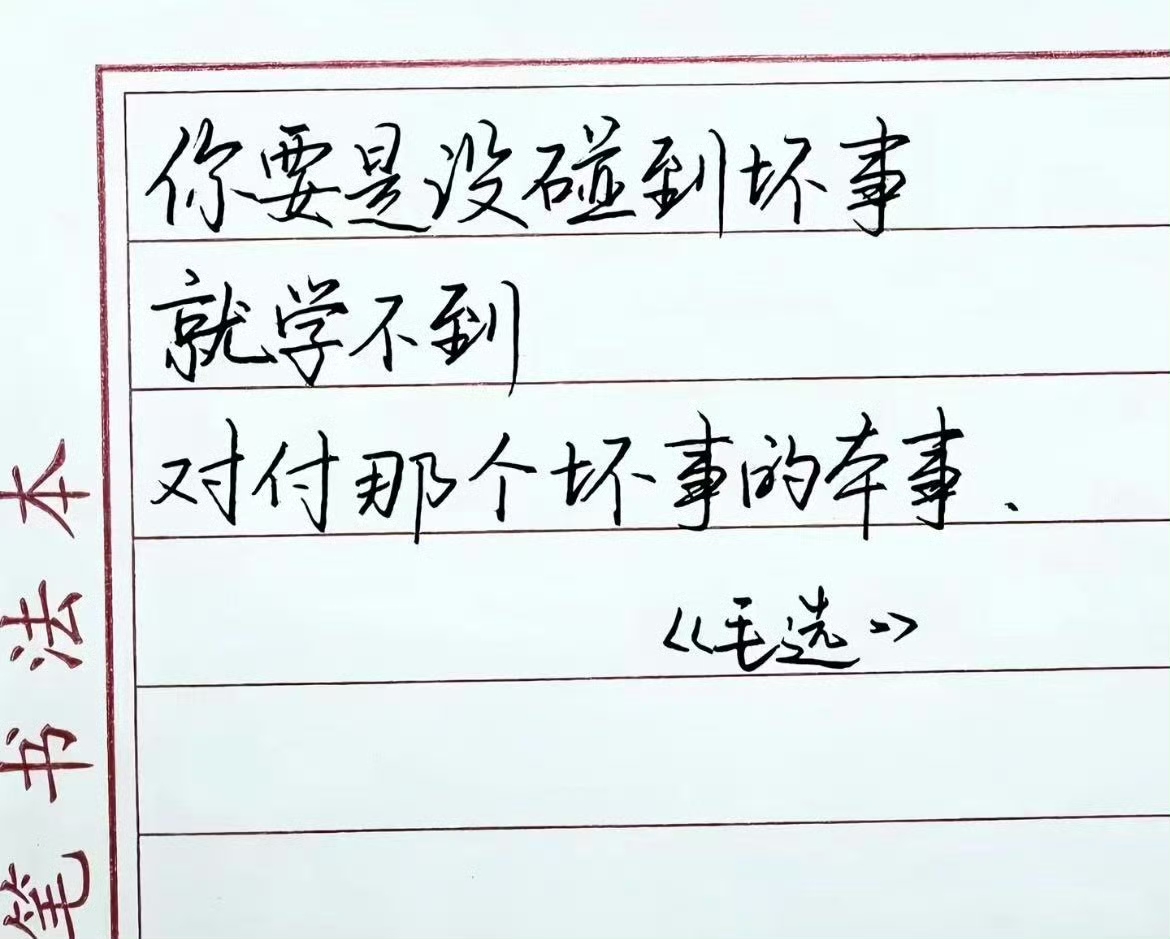 你要是没碰到坏事
就学不到
对付那个坏事的本事、
《毛选》
笔书法本